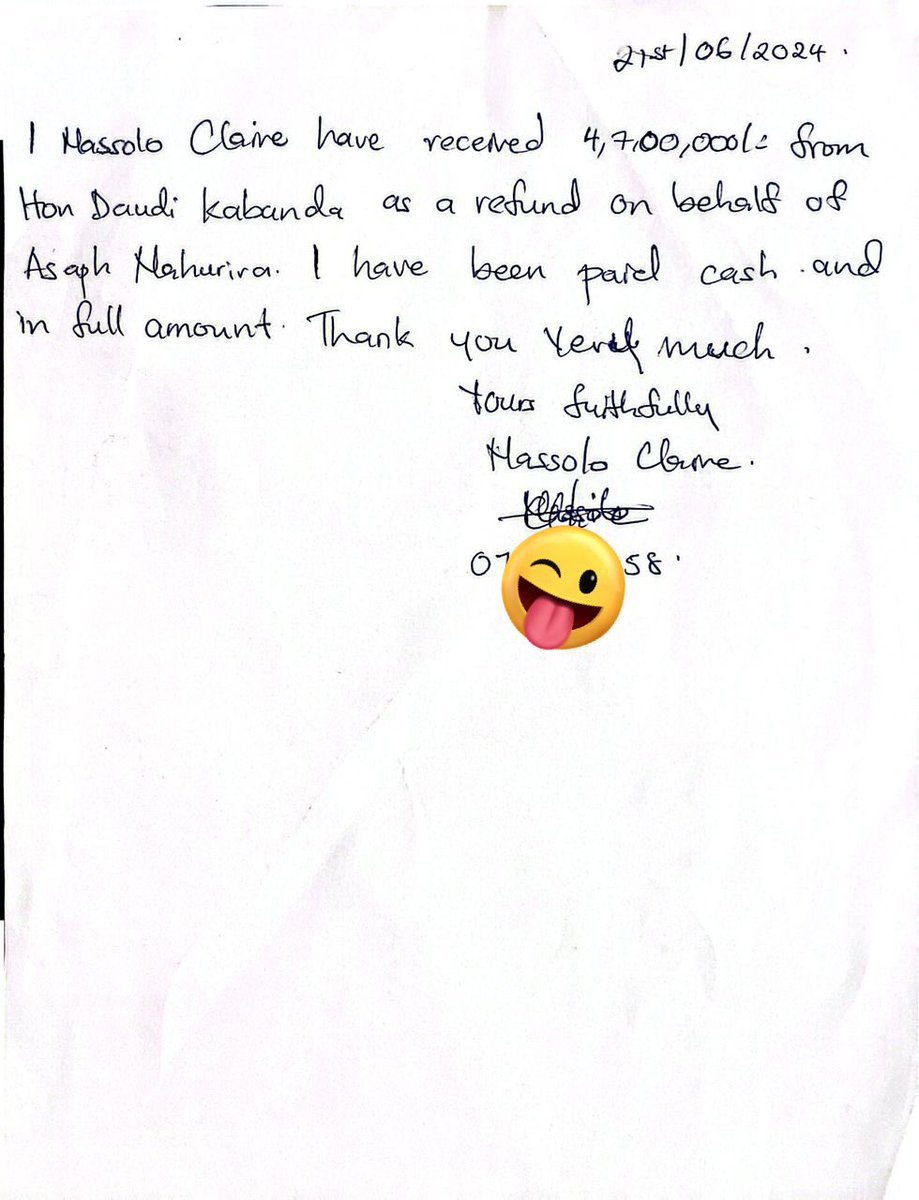 21st/06/2024.
I Nassolo Claire have received 4,700,000/= from
Hon Daudi Kabanda as a refund on behalf of
Asaph Nahurira. I have been paid cash and
in full amount. Thank you very much.
Yours faithfully
Nassolo Claire.
07 58.